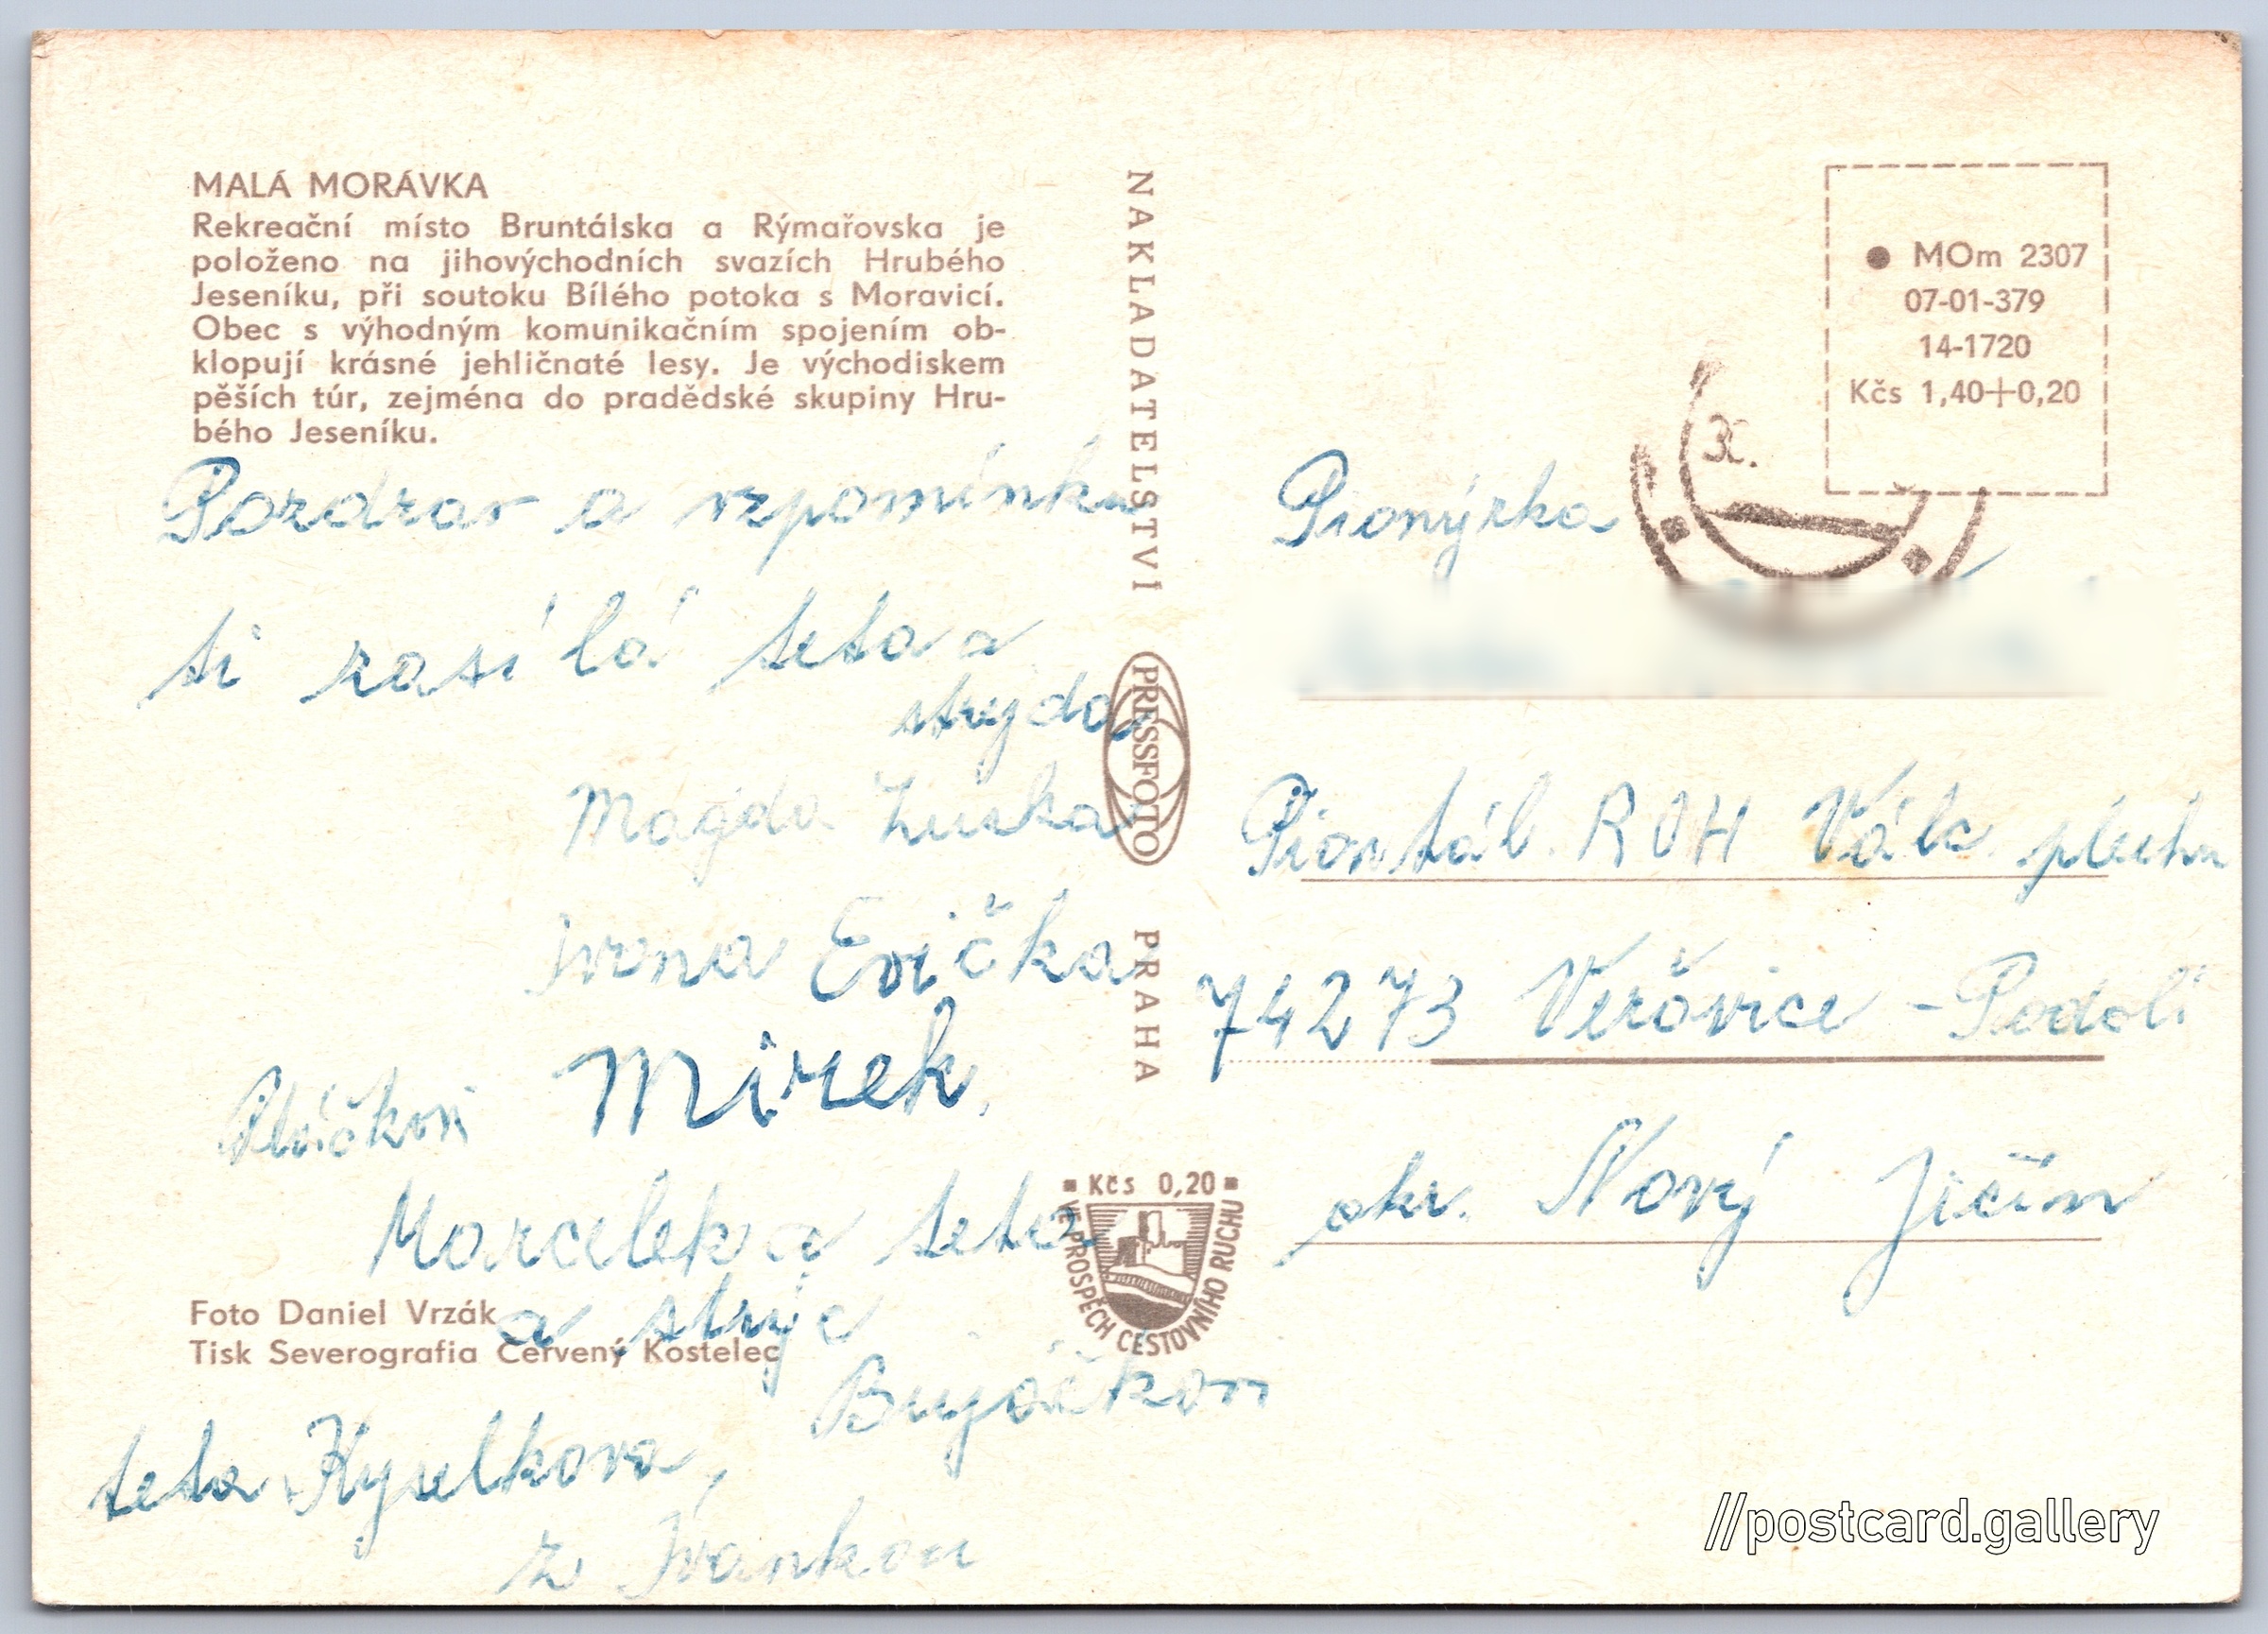 MALÁ MORÁVKA
Rekreační místo Bruntálska a Rýmařovska je
položeno na jihovýchodních svazích Hrubého
Jeseníku, při soutoku Bílého potoka s Moravicí.
Obec s výhodným komunikačním spojením ob-
klopují krásné jehličnaté lesy. Je východiskem
pěších túr, zejména do pradědské skupiny Hru-
bého Jeseníku.
Pozdrav a vzpomínku
ti zasílá teta a
strejda
Magda Zuzka
Ivona Evička
Mirek.
Marcelek a teta
a strýc
teta Kyselkova,
z Ivankou
Foto Daniel Vrzák
Tisk Severografia Červený Kostelec
NAKLADATELSTVÍ
PRESSFOTO
PRAHA
Kčs 0,20
VE PROSPĚCH CESTOVNÍHO RUCHU
● MOm 2307
07-01-379
14-1720
Kčs 1,40+0,20
Pionýrka
Pion. táb. ROH Válc. plechu
74273 Veřovice - Podolí
okr. Nový Jičín
//postcard.gallery